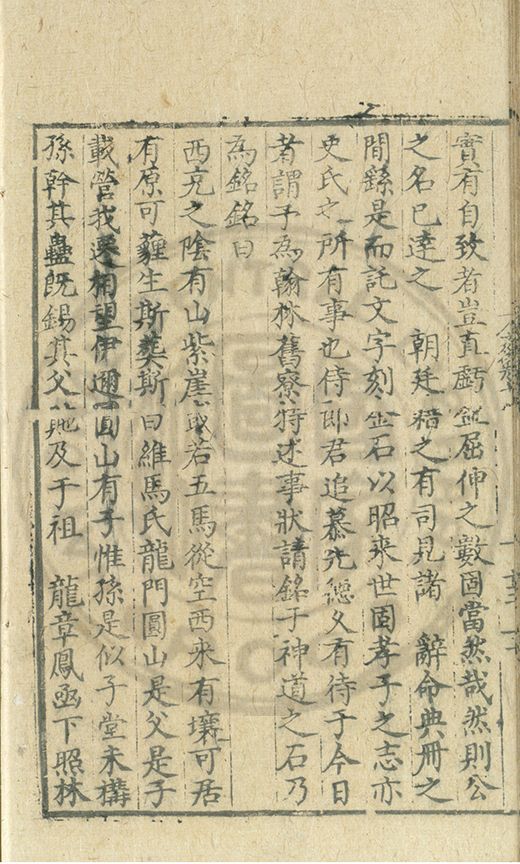 實有自致者豈直虧盈屈伸之數固當然哉然則公
之名已達之 朝廷稽之有司見諸 辭命典冊之
間繇是而託文字刻金石以昭来世固孝子之志亦
史氏之所有事也侍郎君追慕先德又有待于今日
者謂予為翰林舊寮特述事狀請銘于神道之石乃
為銘銘曰
西充之陰有山紫崖或若五馬從空西来有壤可居
有原可薶生斯塟斯曰維馬氏龍門圓山是父是子
載營我遷相望伊邇圓山有子惟孫是似子堂未構
孫幹其蠱既錫其父施及于祖 龍章鳳函下照林